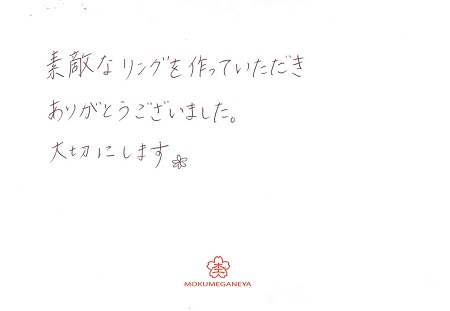 素敵なリングを作っていただき
ありがとうございました。
大切にします
MOKUMEGANEYA